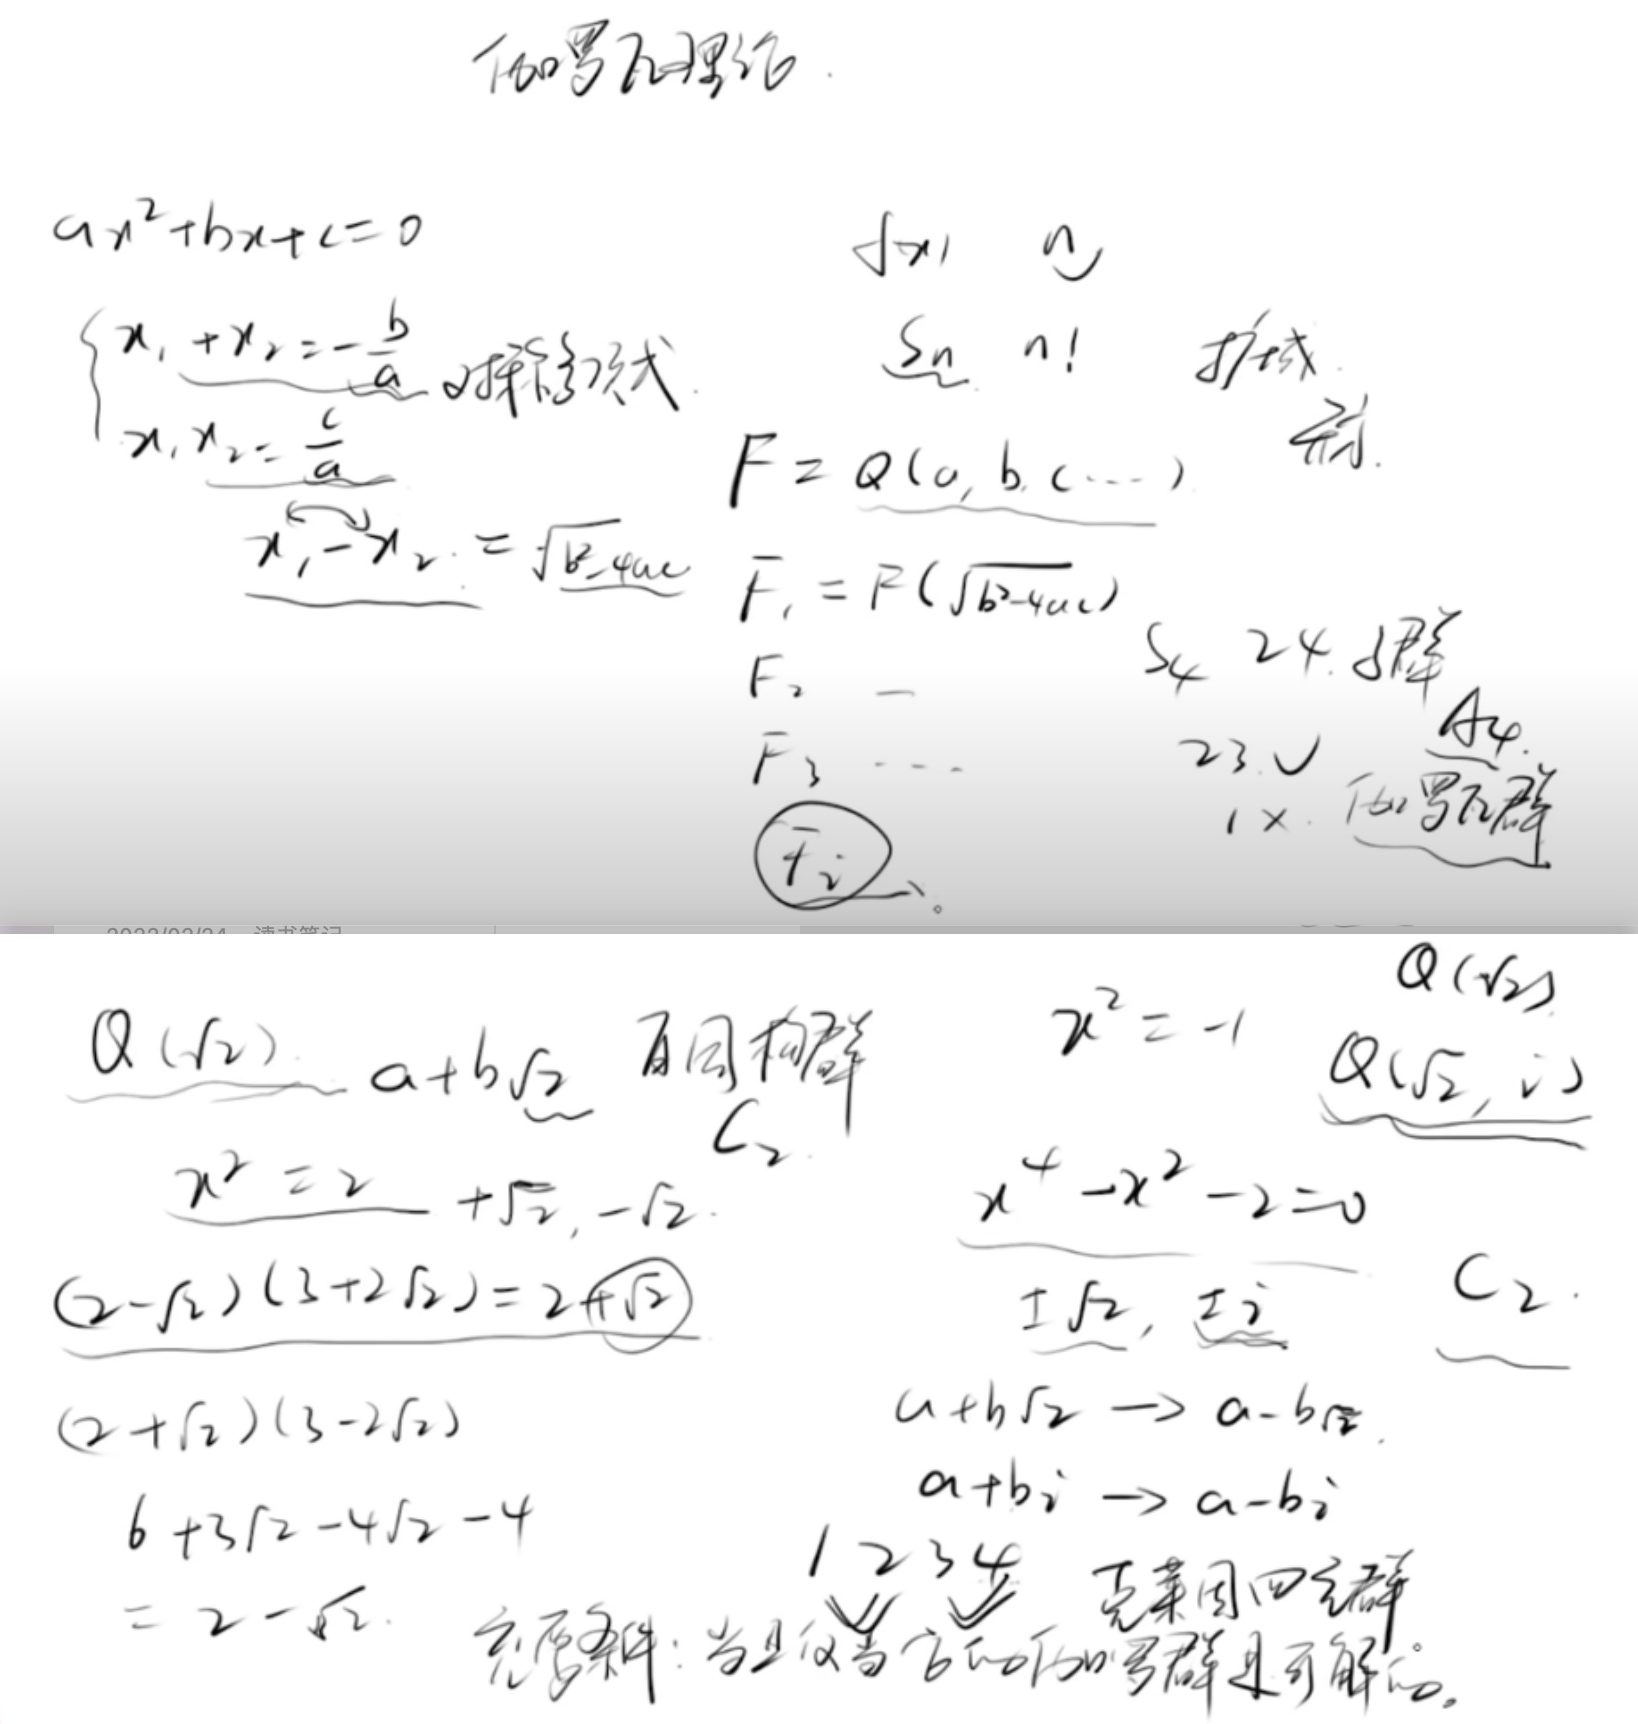 伽罗瓦理论.
ax²+bx+c=0
x₁+x₂=-b/a 对称多项式.
x₁x₂=c/a
x₁-x₂=√b²-4ac
f(x) n
Sn n! 扩域.
F=Q(a,b,c...)
F₁=F(√b²-4ac)
F₂ —
F₃ ...
Fi
S₄ 24. 子群
A4.
23.√
1×. 伽罗瓦群
Q(√2) a+b√2 自同构群
C₂.
x²=2 +√2,-√2.
(2-√2)(3+2√2)=2+√2
(2+√2)(3-2√2)
6+3√2-4√2-4
=2-√2.
x²=-1
Q(√2)
Q(√2,i)
x⁴-x²-2=0
±√2, ±i
C₂.
a+b√2→a-b√2.
a+bi→a-bi
1 2 3 4 克莱因四元群
充要条件:当且仅当它的伽罗群是可解的。